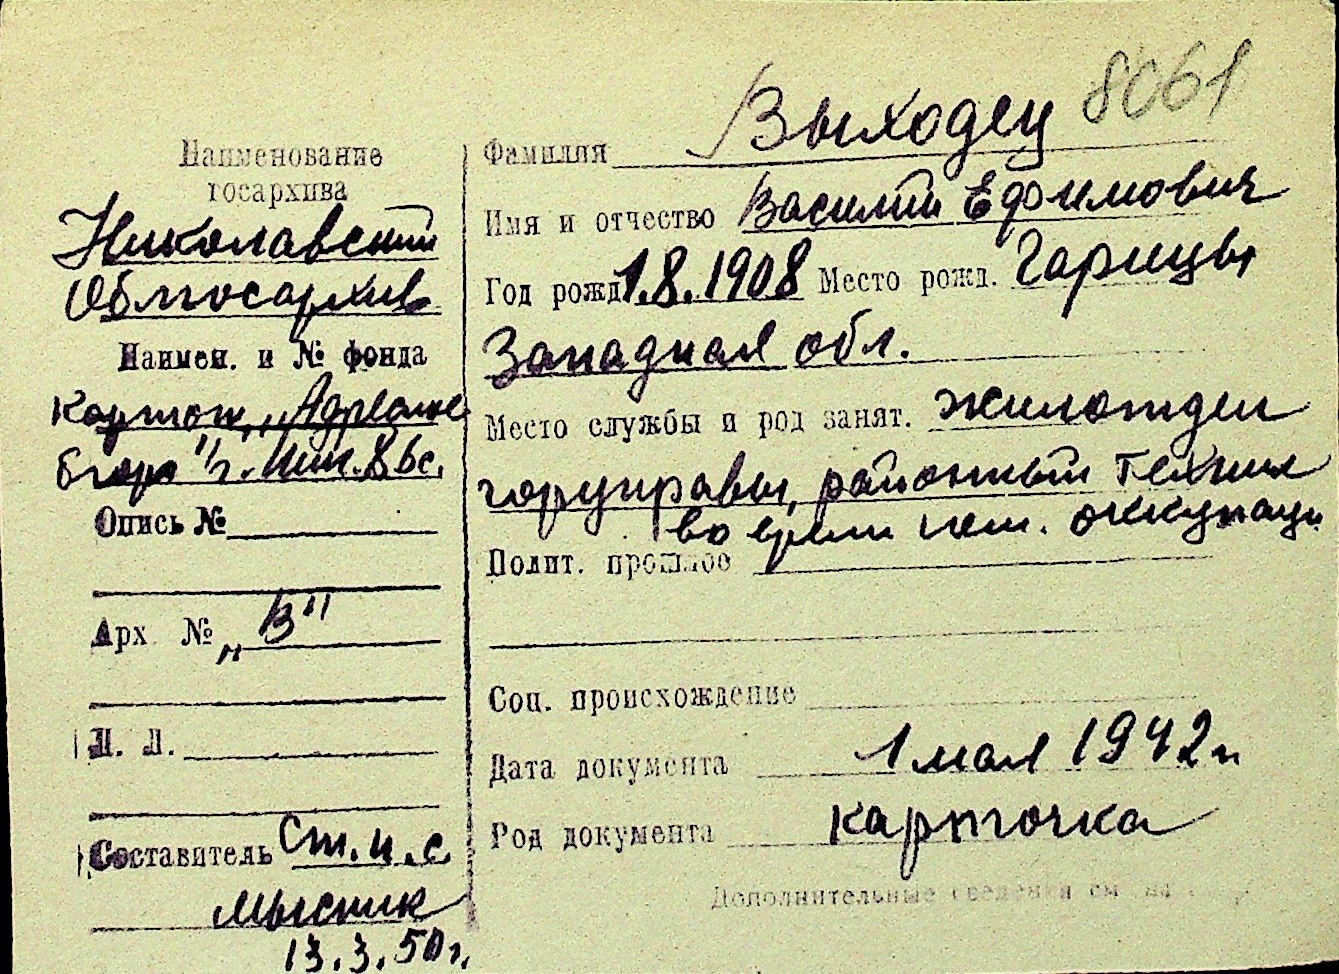 8061
Наименование
госархива
Николаевский
Облгосархив
Наимен. и № фонда
Картот. „Адресное
бюро" г.
Опись №
Арх № „В"
Л. Л.
Составитель Ст. н. с.
Мысник
13.3.50 г.
Фамилия Выходец
Имя и отчество Василий Ефимович
Год рожд. 1.8.1908 Место рожд. Гарицы
Западная обл.
Место службы и род занят. жилотдел
горуправы, районный техник
во время нем. оккупаци
Полит. прошлое
Соц. происхождение
Дата документа 1 мая 1942 г.
Род документа карточка
Дополнительные сведения см на